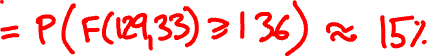 = P(F(129,33) ≥ 1 36) ≈ 15%